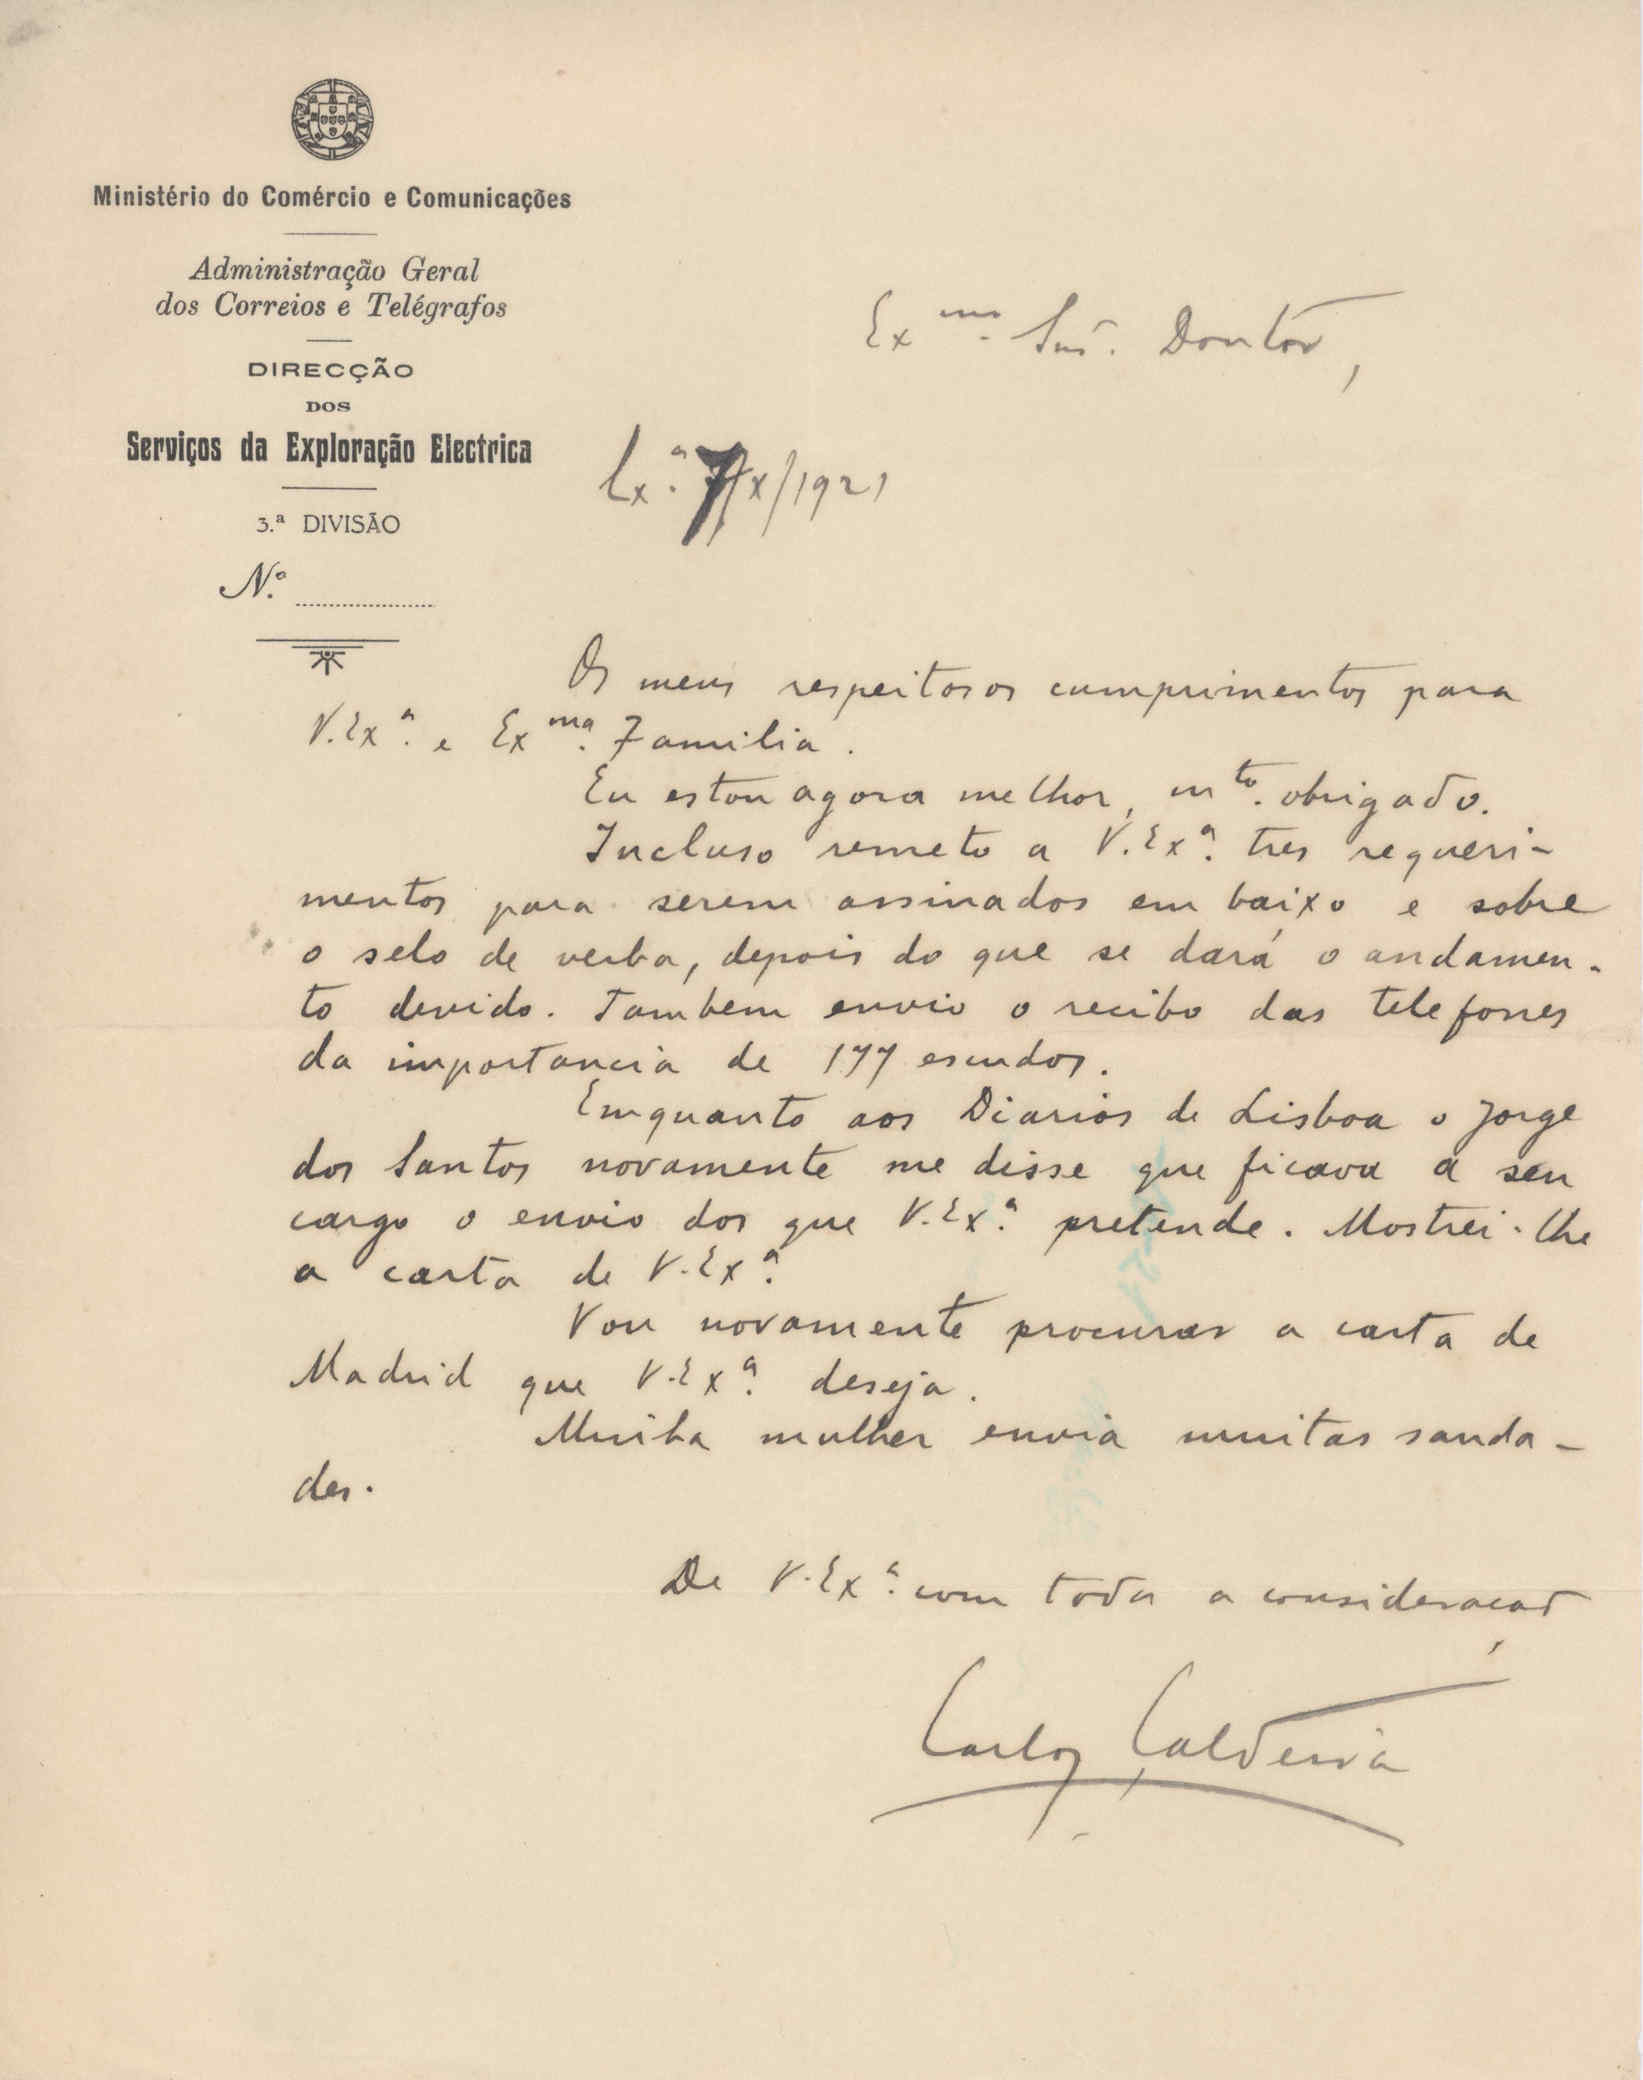 Ministério do Comércio e Comunicações
Administração Geral
dos Correios e Telégrafos
DIRECÇÃO
DOS
Serviços da Exploração Electrica
3.ª DIVISÃO
N.º
Exmo. Snr. Doutor,
Lx.ª 7/X/1921
Os meus respeitosos cumprimentos para
V. Exª. e Exma. Familia.
Eu estou agora melhor, mto. obrigado.
Incluso remeto a V. Exª. tres requeri-
mentos para serem assinados em baixo e sobre
o selo de verba, depois do que se dará o andamen-
to devido. Tambem envio o recibo das telefones
da importancia de 177 escudos.
Emquanto aos Diarios de Lisboa o Jorge
dos Santos novamente me disse que ficava a seu
cargo o envio dos que V. Exª. pretende. Mostrei-lhe
a carta de V. Exª.
Vou novamente procurar a carta de
Madrid que V. Exª. deseja.
Minha mulher envia muitas sauda-
des.
De V. Exª. com toda a consideração
Carlos Caldeira